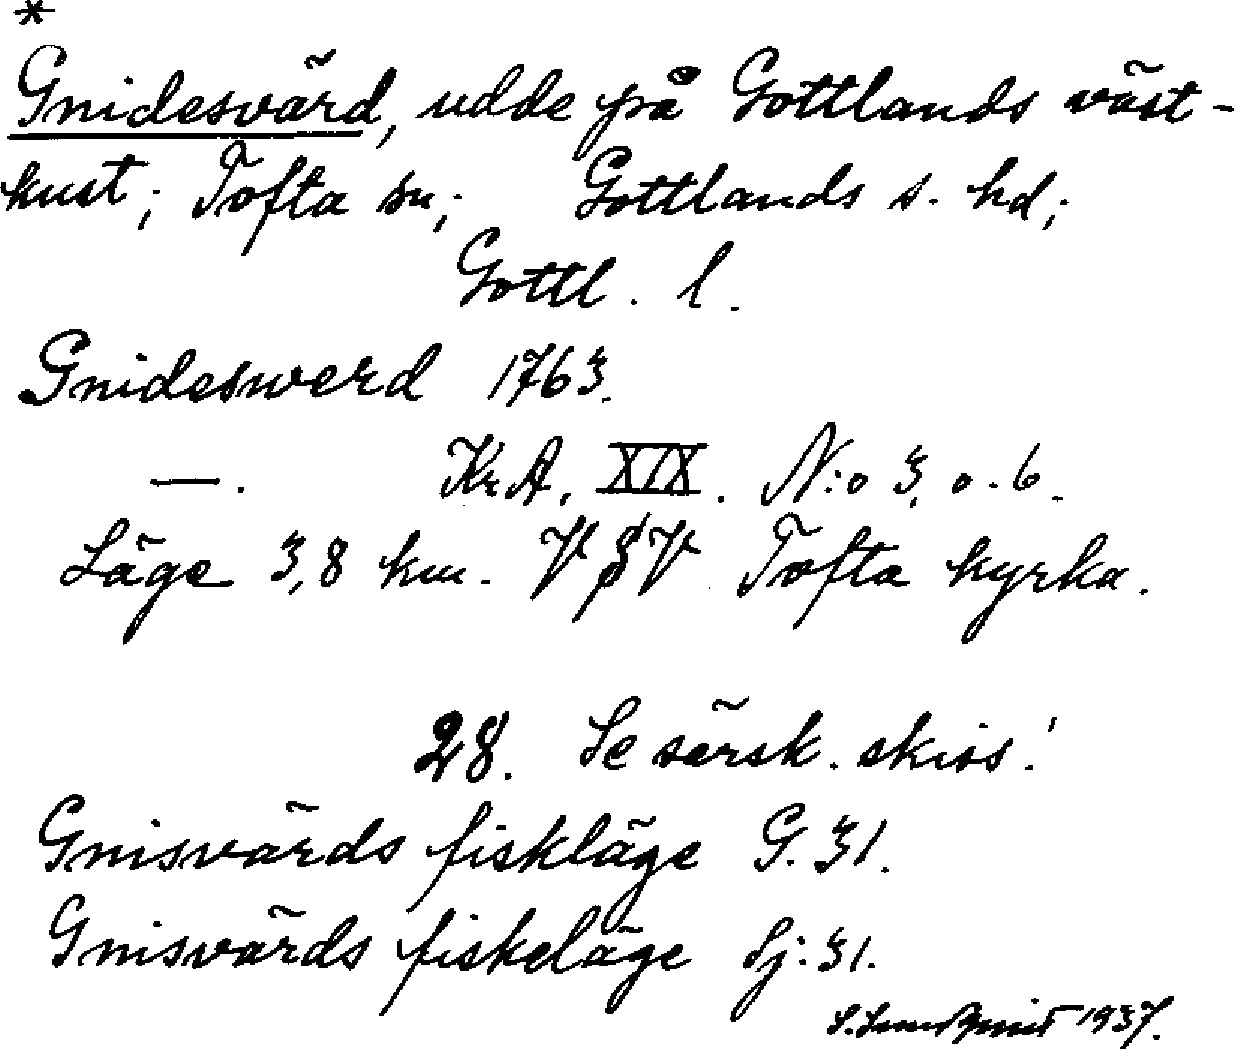 *
Gnidesvärd, udde på Gottlands väst-
kust; Tofta sn; Gottlands s. hd;
Gottl. l.
Gnideswerd 1763.
—. Kr.A. XIX. N:o 3, o. 6.
Läge 3,8 km. V S V Tofta kyrka.
28. Se särsk. skiss!
Gnisvärds fiskläge G. 31.
Gnisvärds fiskeläge Sj: 31.
S. Lundqvist 1937.